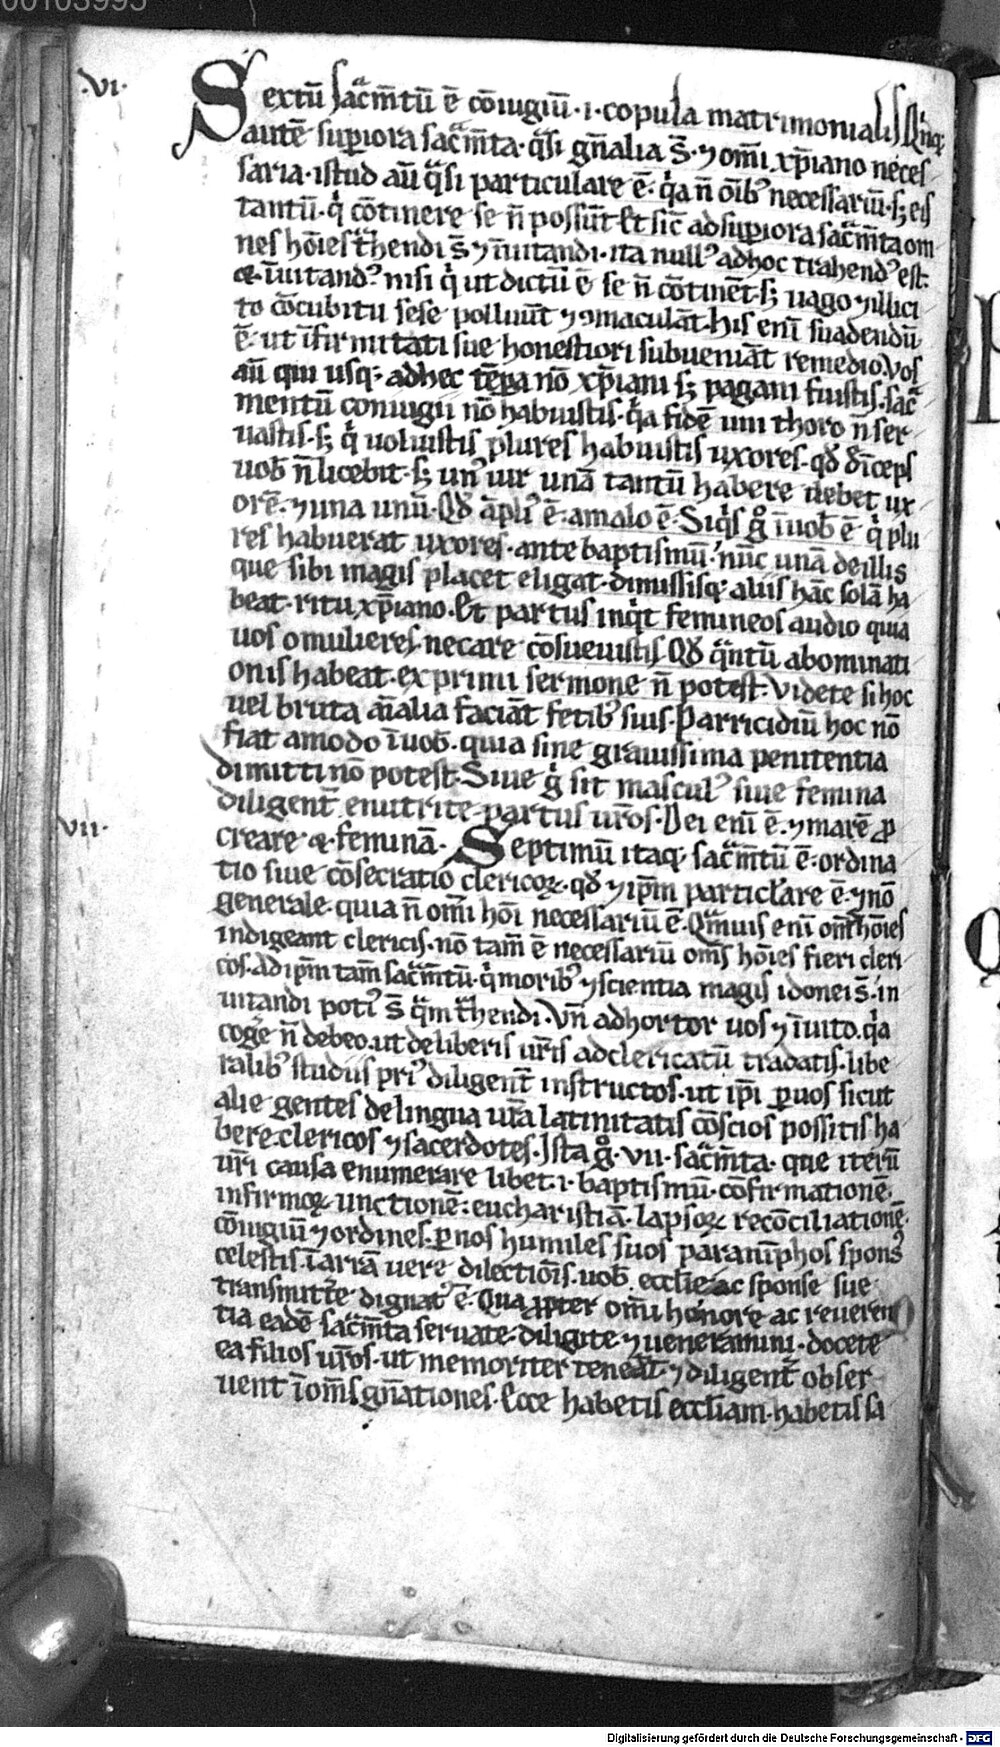 00103995
.vı.
Sextū sac̄m̄tū ē cōiugiū·ı·copula matrimonialis Qīnq;
autē supiora sac̄m̄ta·q̄si gn̄alia s̄·⁊ om̄i xp̄iano neces
saria·istud aū q̄si particulare ē·q̄a n̄ oīb⁹ necessariū·s; eis
tantū·q̇ cōtinere se n̄ possūt·Et sic̄ ad supiora sac̄m̄ta om
nes hōies t̄hendi s̄ ⁊ īuitandi·ita null⁹ ad hoc trahend⁹ est·
& īuitand⁹·nisi q̇ ut dictū ē se n̄ cōtinēt·s; uago ⁊ illici
to cōcubitu sese polluūt ⁊ ꝯmaculāt·his enī suadendū
ē·ut īfirmitati sue honestiori subueniāt remedio.Vos
aū qui usq; adhec tēpa nō xp̄iani s; pagani fuistis·sac̄
mentū coniugii nō habuistis·q̄a fidē uni thoro n̄ ser
uastis·s; q̇ uoluistis plures habuistis uxores·qđ dīceps
uob̄ n̄ licebit·s; un⁹ uir unā tantū habere debet ux
orē·⁊ una unū·Qđ āpli⁹ ē·a malo ē·Siq̇s g̊ ī uob̄ ē q̇ plu
res habuerat uxores·ante baptismū·nūc unā de illis
que sibi magis placet eligat·dimissisq; aliis hāc solā ha
beat·ritu xp̄iano·Et partus inq̇t femineos audio quia
uos o mulieres·necare cōsueuistis·Qđ q̄ntū abominati
onis habeat·exprimi sermone n̄ potest·Videte si hoc
uel bruta aīalia faciāt fetib⁹ suis·Parricidiū hoc nō
fiat amodo ī uob̄·quia sine grauissima penitentia
dimitti nō potest·Siue g̊ sit mascul⁹ siue femina
diligent̄ enutrite partus ur̄os·Dei enī ē·⁊ marē ꝓ
.vıı.
creare & feminā·Septimū itaq; sac̄m̄tū ē·ordina
tio siue cōsecratio clericoꝝ·qđ ⁊ ip̄m particl̄are ē·⁊ nō
generale·quia n̄ om̄i hōi necessariū ē·Q̄muis enī om̄s hōies
indigeant clericis·nō tam̄ ē necessariū om̄s hōies fieri cleri
cos·Ad ip̄m tam̄ sac̄m̄tū·q̇ morib⁹ ⁊ scientia magis idonei s̄·in
uitandi poti⁹ s̄ q̄m t̄hendi·Vn̄ adhortor uos ⁊ īuito·q̄a
cog̃e n̄ debeo·ut de liberis ur̄is ad clericatū tradatis·libe
ralib⁹ studiis pri⁹ diligent̄ instructos·ut ip̄i ꝑ uos sicut
alie gentes de lingua ur̄a latinitatis cōscios possitis ha
bere·clericos ⁊ sacerdotes·Ista g̊·vıı·sac̄m̄ta·que iterū
ur̄i causa enumerare libet·ı·baptismū·cōfirmationē·
infirmoꝝ unctionē·eucharistiā·lapsoꝝ recōciliationē·
cōiugiū ⁊ ordines·ꝑ nos humiles suos paranīphos spons⁹
celestis·ī arrā uere dilectiōis·uob̄ eccl̄ie ac sponse sue
transmitt̄e dignat⁹ ē·Qua ꝓpter om̄i honore ac reueren
tia eadē sac̄m̄ta seruate·diligite ⁊ ueneramini·docete
ea filios ur̄os·ut memoriter teneāt·⁊ diligent̄ obser
uent ī om̄s gn̄ationes·Ecce habetis eccl̄iam·habetis sa
Digitalisierung gefördert durch die Deutsche Forschungsgemeinschaft - DFG